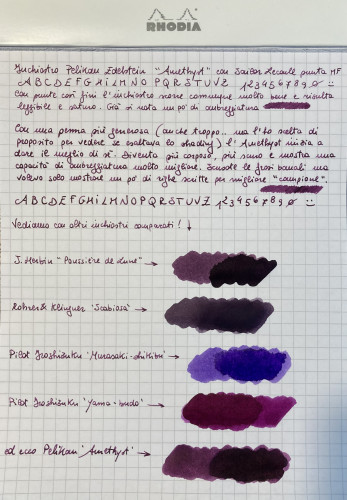 RHODIA
Inchiostro Pelikan Edelstein "Amethyst" con Sailor Recaule punta MF
A B C D E F G H I L M N O P Q R S T U V Z 1 2 3 4 5 6 7 8 9 0 :)
Con punte così fini l'inchiostro scorre comunque molto bene e risulta
leggibile e saturo. Già si nota un po' di ombreggiatura
Con una penna più generosa (anche troppo... ma l'ho scelta di
proposito per vedere se esaltava lo shading) l'Amethyst inizia a
dare il meglio di sé. Diventa più corposo, più scuro e mostra una
capacità di ombreggiatura molto migliore. Scusate le frasi banali ma
volevo solo mostrare un po' di righe scritte per migliore "campione".
A B C D E F G H I L M N O P Q R S T U V Z 1 2 3 4 5 6 7 8 9 0 :)
Vediamo con altri inchiostri comparati! ↓
J. Herbin "Poussière de Lune" →
Rohrer & Klingner 'Scabiosa' →
Pilot Iroshizuku 'Murasaki-shikibu' →
Pilot Iroshizuku 'Yama-budo' →
ed ecco Pelikan 'Amethyst' →